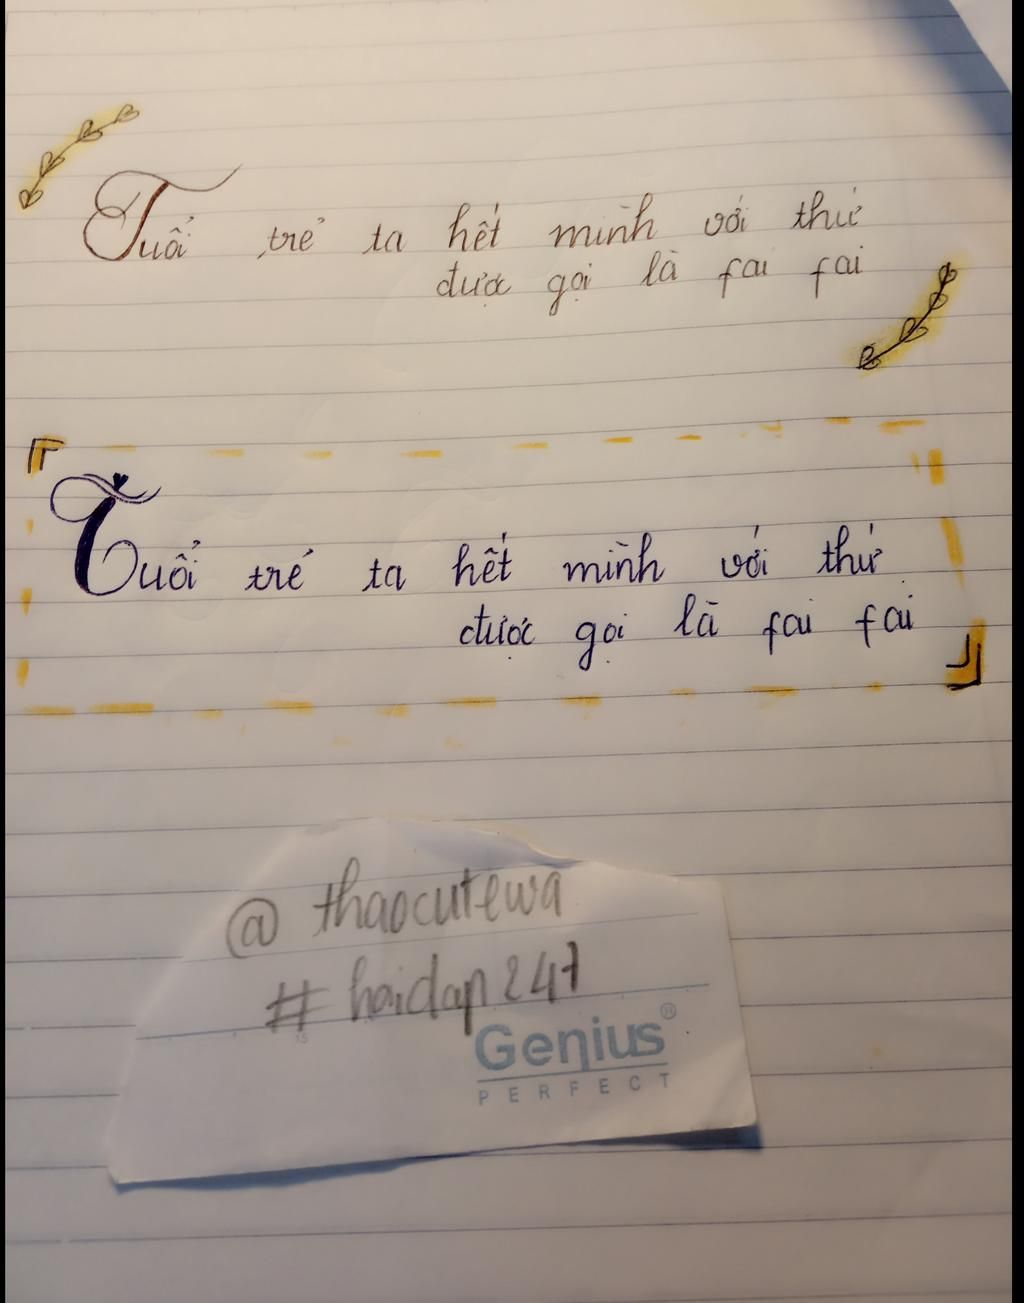 Tuổi trẻ ta hết mình với thứ
được gọi là fai fai
Tuổi trẻ ta hết mình với thứ
được gọi là fai fai
@thaocutewa
#hoidap247
Genius®
PERFECT
15